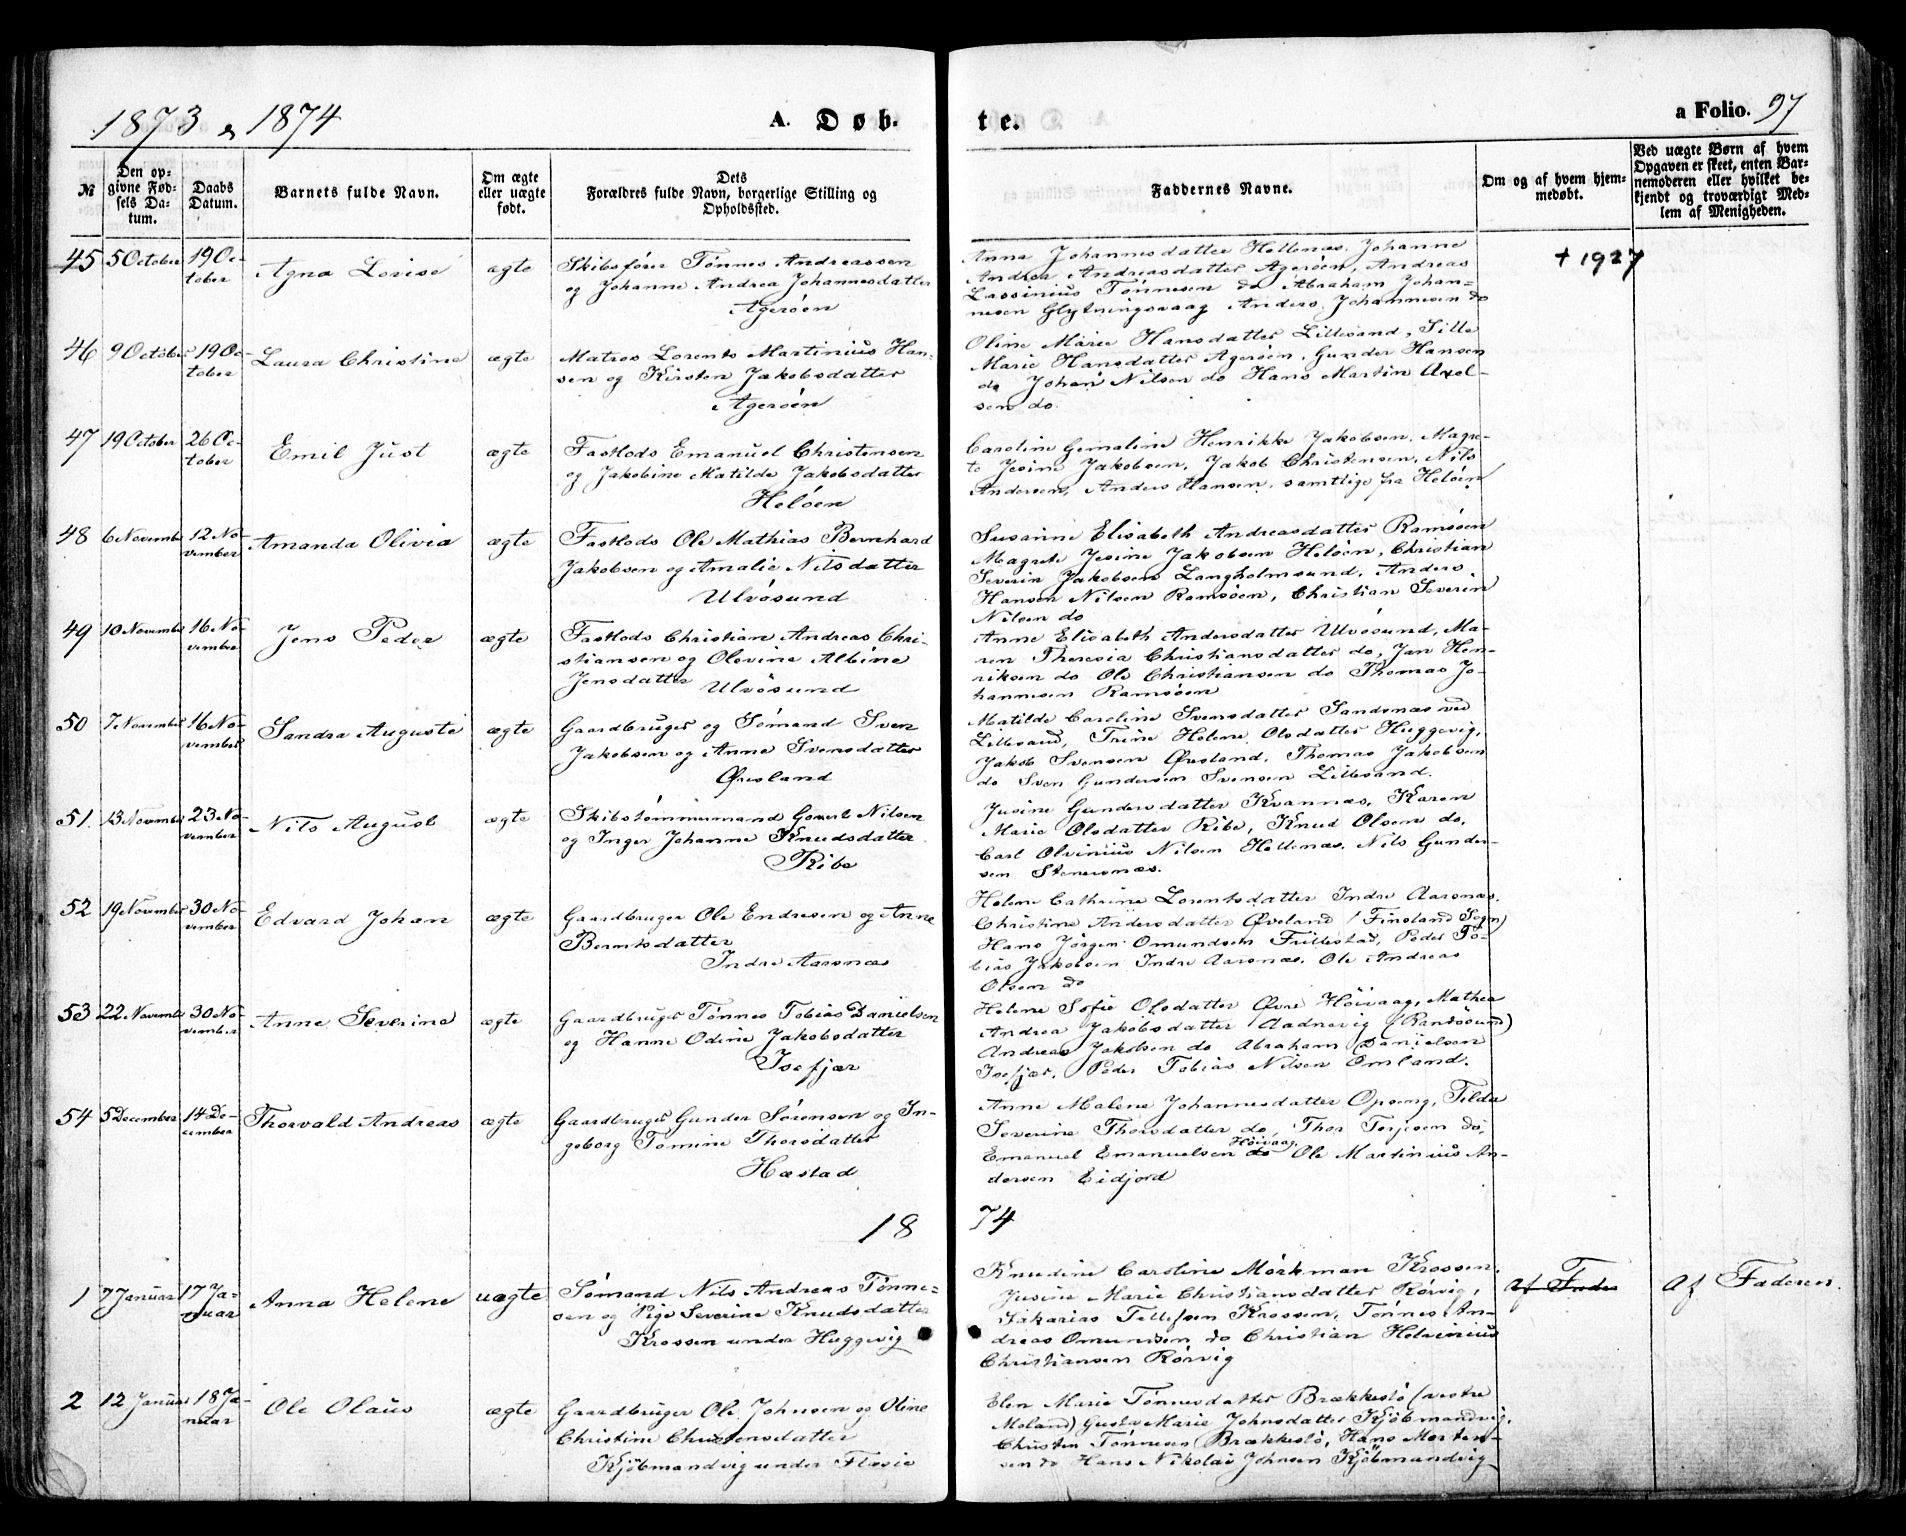 1873 & 1874 A. Døb-
te. a Folio. 97
№
Den op-
givne Fød-
sels Da-
tum.
Daabs
Datum.
Barnets fulde Navn.
Om ægte
eller uægte
født.
Dets
Forældres fulde Navn, borgerlige Stilling og
Opholdssted.
Faddernes Navne.
Om og af hvem hjem-
medøbt.
Ved uægte Børn af hvem
Opgaven er skeet, enten Bar-
nemoderen eller hvilket be-
kjendt og troværdigt Med-
lem af Menigheden.
45 5 October 19 Oc-
tober
Agna Lovise
ægte
Skibsfører Tønnes Andreassen
og Johanne Andrea Johannesdatter
Agerøen
Anna Johannesdatter Hellenæs, Johanne
Andrea Andreasdatter Agerøen, Andreas
Lassinius Tønnesen do Abraham Johan-
nesen Glytningsvaag Anders Johannesen do
+ 1927
46 9 October 19 Oc-
tober
Laura Christine
ægte
Matros Lorents Martinius Han-
sen og Kirsten Jakobsdatter
Agerøen
Oline Marie Hansdatter Lillesand, Sille
Marie Hansdatter Agerøen, Gunder Hansen
do Johan Nilsen do Hans Martin Axel-
sen do.
47 19 October 26 Oc-
tober
Emil Just
ægte
Fastlods Emanuel Christensen
og Jakobine Matilde Jakobsdatter
Heløen
Caroline Gemaline Henrikke Jakobsen, Magre-
te Jesine Jakobsen, Jakob Christensen, Nils
Andersen, Anders Hansen, samtlige fra Heløen
48 6 November 12 No-
vember
Amanda Olivia
ægte
Fastlods Ole Mathias Bernhard
Jakobsen og Amalie Nilsdatter
Ulvøsund
Susanne Elisabeth Andreasdatter Ramsøen
Magrete Jesine Jakobsen Heløen, Christian
Severin Jakobsen Langholmsund, Anders
Hansen Nilsen Ramsøen, Christian Severin
Nilsen do
49 10 November 16 No-
vember
Jens Peder
ægte
Fastlods Christian Andreas Chri-
stiansen og Olevine Albine
Jensdatter Ulvøsund
Anne Elisabeth Andersdatter Ulvøsund, Ma-
ren Theresia Christiansdatter do, Jan Hen-
riksen do Ole Christiansen do Thomas Jo-
hannesen Ramsøen
50 7 November 16 No-
vember
Sandra Auguste
ægte
Gaardbruger og Sømand Sven
Jakobsen og Anne Svensdatter
Øvesland
Matilde Caroline Svensdatter Sandsnæs ved
Lillesand, Trine Helene Olsdatter Huggevig,
Jakob Svensen Øvesland, Thomas Jakobsen
do Sven Gundersen Svensen Lillesand.
51. 13 November 23 No-
vember
Nils August
ægte
Skibstømmermand Govert Nilsen
og Inger Johanne Knudsdatter
Ribe
Jusine Gundersdatter Kvannæs, Karen
Marie Olsdatter Ribe, Knud Olsen do,
Carl Olvinius Nilsen Hellenæs, Nils Gunder-
sen Stenesnæs.
52 19 November 30 No-
vember
Edvard Johan
ægte
Gaardbruger Ole Endresen og Anne
Berntsdatter
Indre Aarsnæs
Helene Cathrine Lorentsdatter Indre Aarsnæs.
Christine Andersdatter Øveland (Finsland Sogn)
Hans Jørgen Omundsen Frillestad, Peder To-
bias Jakobsen Indre Aarsnæs, Ole Andreas
Olsen do
53 22 Novemb 30 No-
vember
Anne Severine
ægte
Gaardbruger Tønnes Tobias Danielsen
og Hanne Odine Jakobsdatter
Isefjær
Helene Sofie Olsdatter Øvre Høivaag, Mathea
Andrea Jakobsdatter Aadnevig (Randøsund)
Andreas Jakobsen do Abraham Danielsen
Isefjær, Peder Tobias Nilsen Omland.
54 5 December 14 De-
cember
Thorvald Andreas
ægte
Gaardbruger Gunder Sørensen og In-
geborg Tomine Thorsdatter
Hæstad
Anne Malene Johannesdatter Opseng, Tilda
Severine Thorsdatter do, Thor Terjesen do,
Høivaag
Emanuel Emanuelsen do Ole Martinius An-
dersen Eidjord
18 74
1 7 Januar 17 Ja-
nuar
Anna Helene
uægte
Sømand Nils Andreas Tønne-
sen og Pige Severine Knudsdatter
Krossen under Huggevig
Knudine Caroline Mørkman Krossen,
Jusine Marie Christiansdatter Rørvig,
Sakarias Tellefsen Krossen, Tønnes An-
dreas Omundsen do Christian Helvinius
Christiansen Rørvig
Af Fader
Af Faderen.
2 12 Januar 18 Ja-
nuar
Ole Olaus
ægte
Gaardbruger Ole Johnsen og Oline
Christine Christensdatter
Kjøbmandvig under Flæsie
Elen Marie Tønnesdatter Brækkestø (vestre
Moland) Gusta Marie Johnsdatter Kjøbmandvig,
Christen Tønnesen Brækkestø, Hans Morten-
sen do Hans Nikolai Johnsen Kjøbmandvig